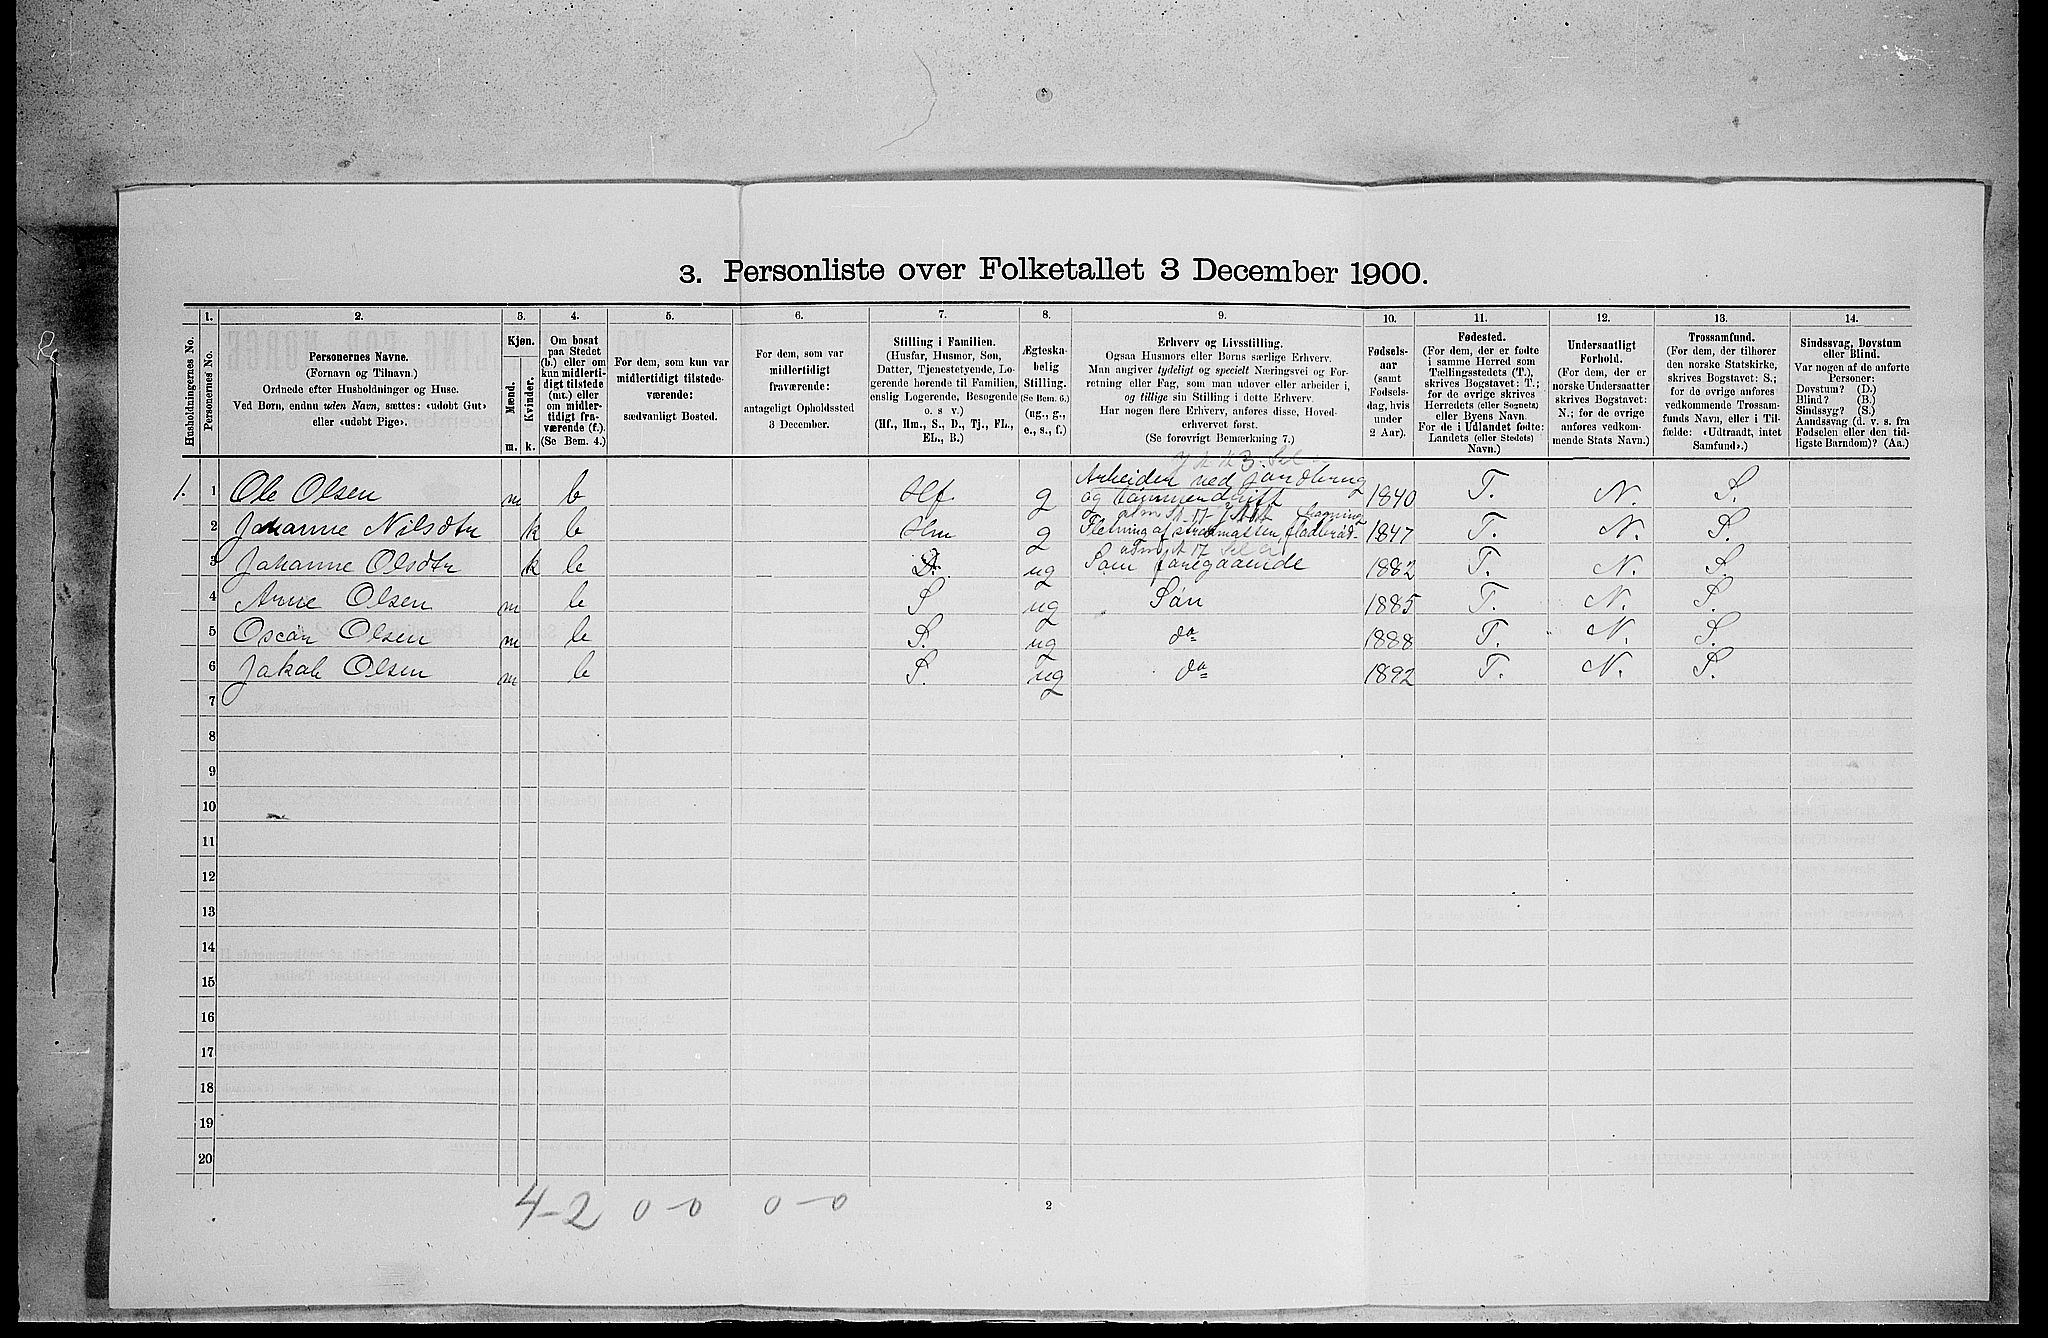 3. Personliste over Folketallet 3 December 1900.
Husholdningernes No.
1.
Personernes No.
2.
Personernes Navne.
(Fornavn og Tilnavn.)
Ordnede efter Husholdninger og Huse.
Ved Børn, endnu uden Navn, sættes: «udøbt Gut»
eller «udøbt Pige».
3.
Kjøn.
Mænd.
Kvinder.
m. k.
4.
Om bosat
paa Stedet
(b.) eller om
kun midlerti-
digt tilstede
(mt.) eller
om midler-
tidigt fra-
værende (f.).
(Se Bem. 4.)
5.
For dem, som kun var
midlertidigt tilstede-
værende:
sædvanligt Bosted.
6.
For dem, som var
midlertidigt
fraværende:
antageligt Opholdssted
3 December.
7.
Stilling i Familien.
(Husfar, Husmor, Søn,
Datter, Tjenestetyende, Lo-
gerende hørende til Familien,
enslig Logerende, Besøgende
o. s v.)
(Hf., Hm., S., D., Tj., FL.,
EL., B.)
8.
Ægteska-
belig
Stilling.
(Se Bem. 6.)
(ug., g.,
e., s., f.)
9.
Erhverv og Livsstilling.
Ogsaa Husmors eller Børns særlige Erhverv.
Man angiver tydeligt og specielt Næringsvei og For-
retning eller Fag, som man udover eller arbeider i,
og tillige sin Stilling i dette Erhverv.
Har nogen flere Erhverv, anføres disse, Hoved-
erhvervet først.
(Se forøvrigt Bemærkning 7.)
10.
Fødsels-
aar
(samt
Fødsels-
dag, hvis
under
2 Aar).
11.
Fødested.
(For dem, der er fødte
i samme Herred som
Tællingsstedets (T.),
skrives Bogstavet: T.;
for de øvrige skrives
Herredets (eller Sognets)
eller Byens Navn.
For de i Udlandet fødte:
Landets (eller Stedets)
Navn.)
12.
Undersaatligt
Forhold.
(For dem, der er
norske Undersaatter
skrives Bogstavet:
N.; for de øvrige
anføres vedkom-
mende Stats Navn.)
13.
Trossamfund.
(For dem, der tilhører
den norske Statskirke,
skrives Bogstavet: S.;
for de øvrige anføres
vedkommende Trossam-
funds Navn, eller i Til-
fælde: «Udtraadt, intet
Samfund».)
14.
Sindssvag, Døvstum
eller Blind.
Var nogen af de anførte
Personer:
Døvstum? (D.)
Blind? (B.)
Sindssyg? (S.)
Aandssvag (d. v. s. fra
Fødselen eller den tid-
ligste Barndom)? (Aa.)
1. 1 Ole Olsen m b Hf. g Arbeider ved Jordbrug og Tømmerdrift 1840 T. N. S.
2 Johanne Nilsdtr k b Hm g Fletning af straamatter, 1847 T. N. S.
3 Johanne Olsdtr k b D. ug Som foregaaende 1882 T. N. S.
4 Arne Olsen m b S ug Søn 1885 T. N. S.
5 Oscar Olsen m b S. ug do 1888 T. N. S.
6 Jakob Olsen m b S. ug do 1892 T. N. S.
7
8
9
10
11
12
13
14
15
16
17
18
19
20
4-2 0-0 0-0
2